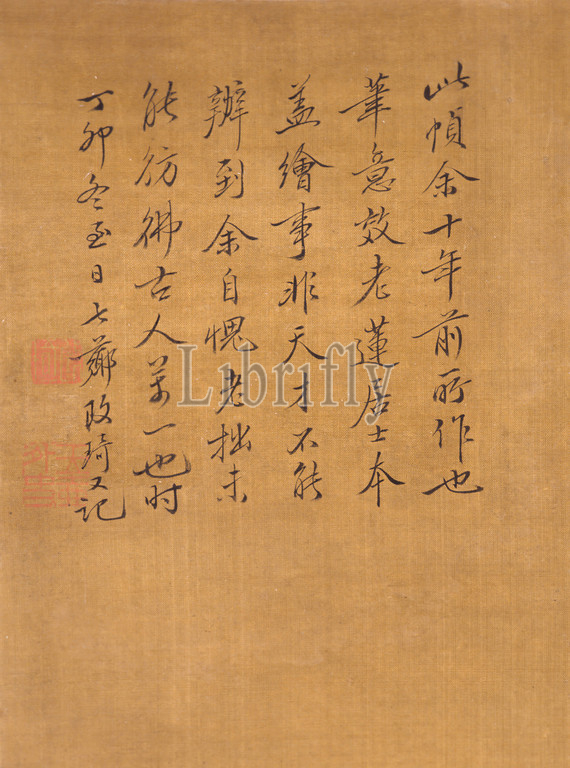 此幀余十年前所作也
筆意效老蓮居士本
盖繪事非天才不能
辦到余自愧老拙未
能彷彿古人萬一也时
丁卯冬至日七薌改琦又記
Librifly